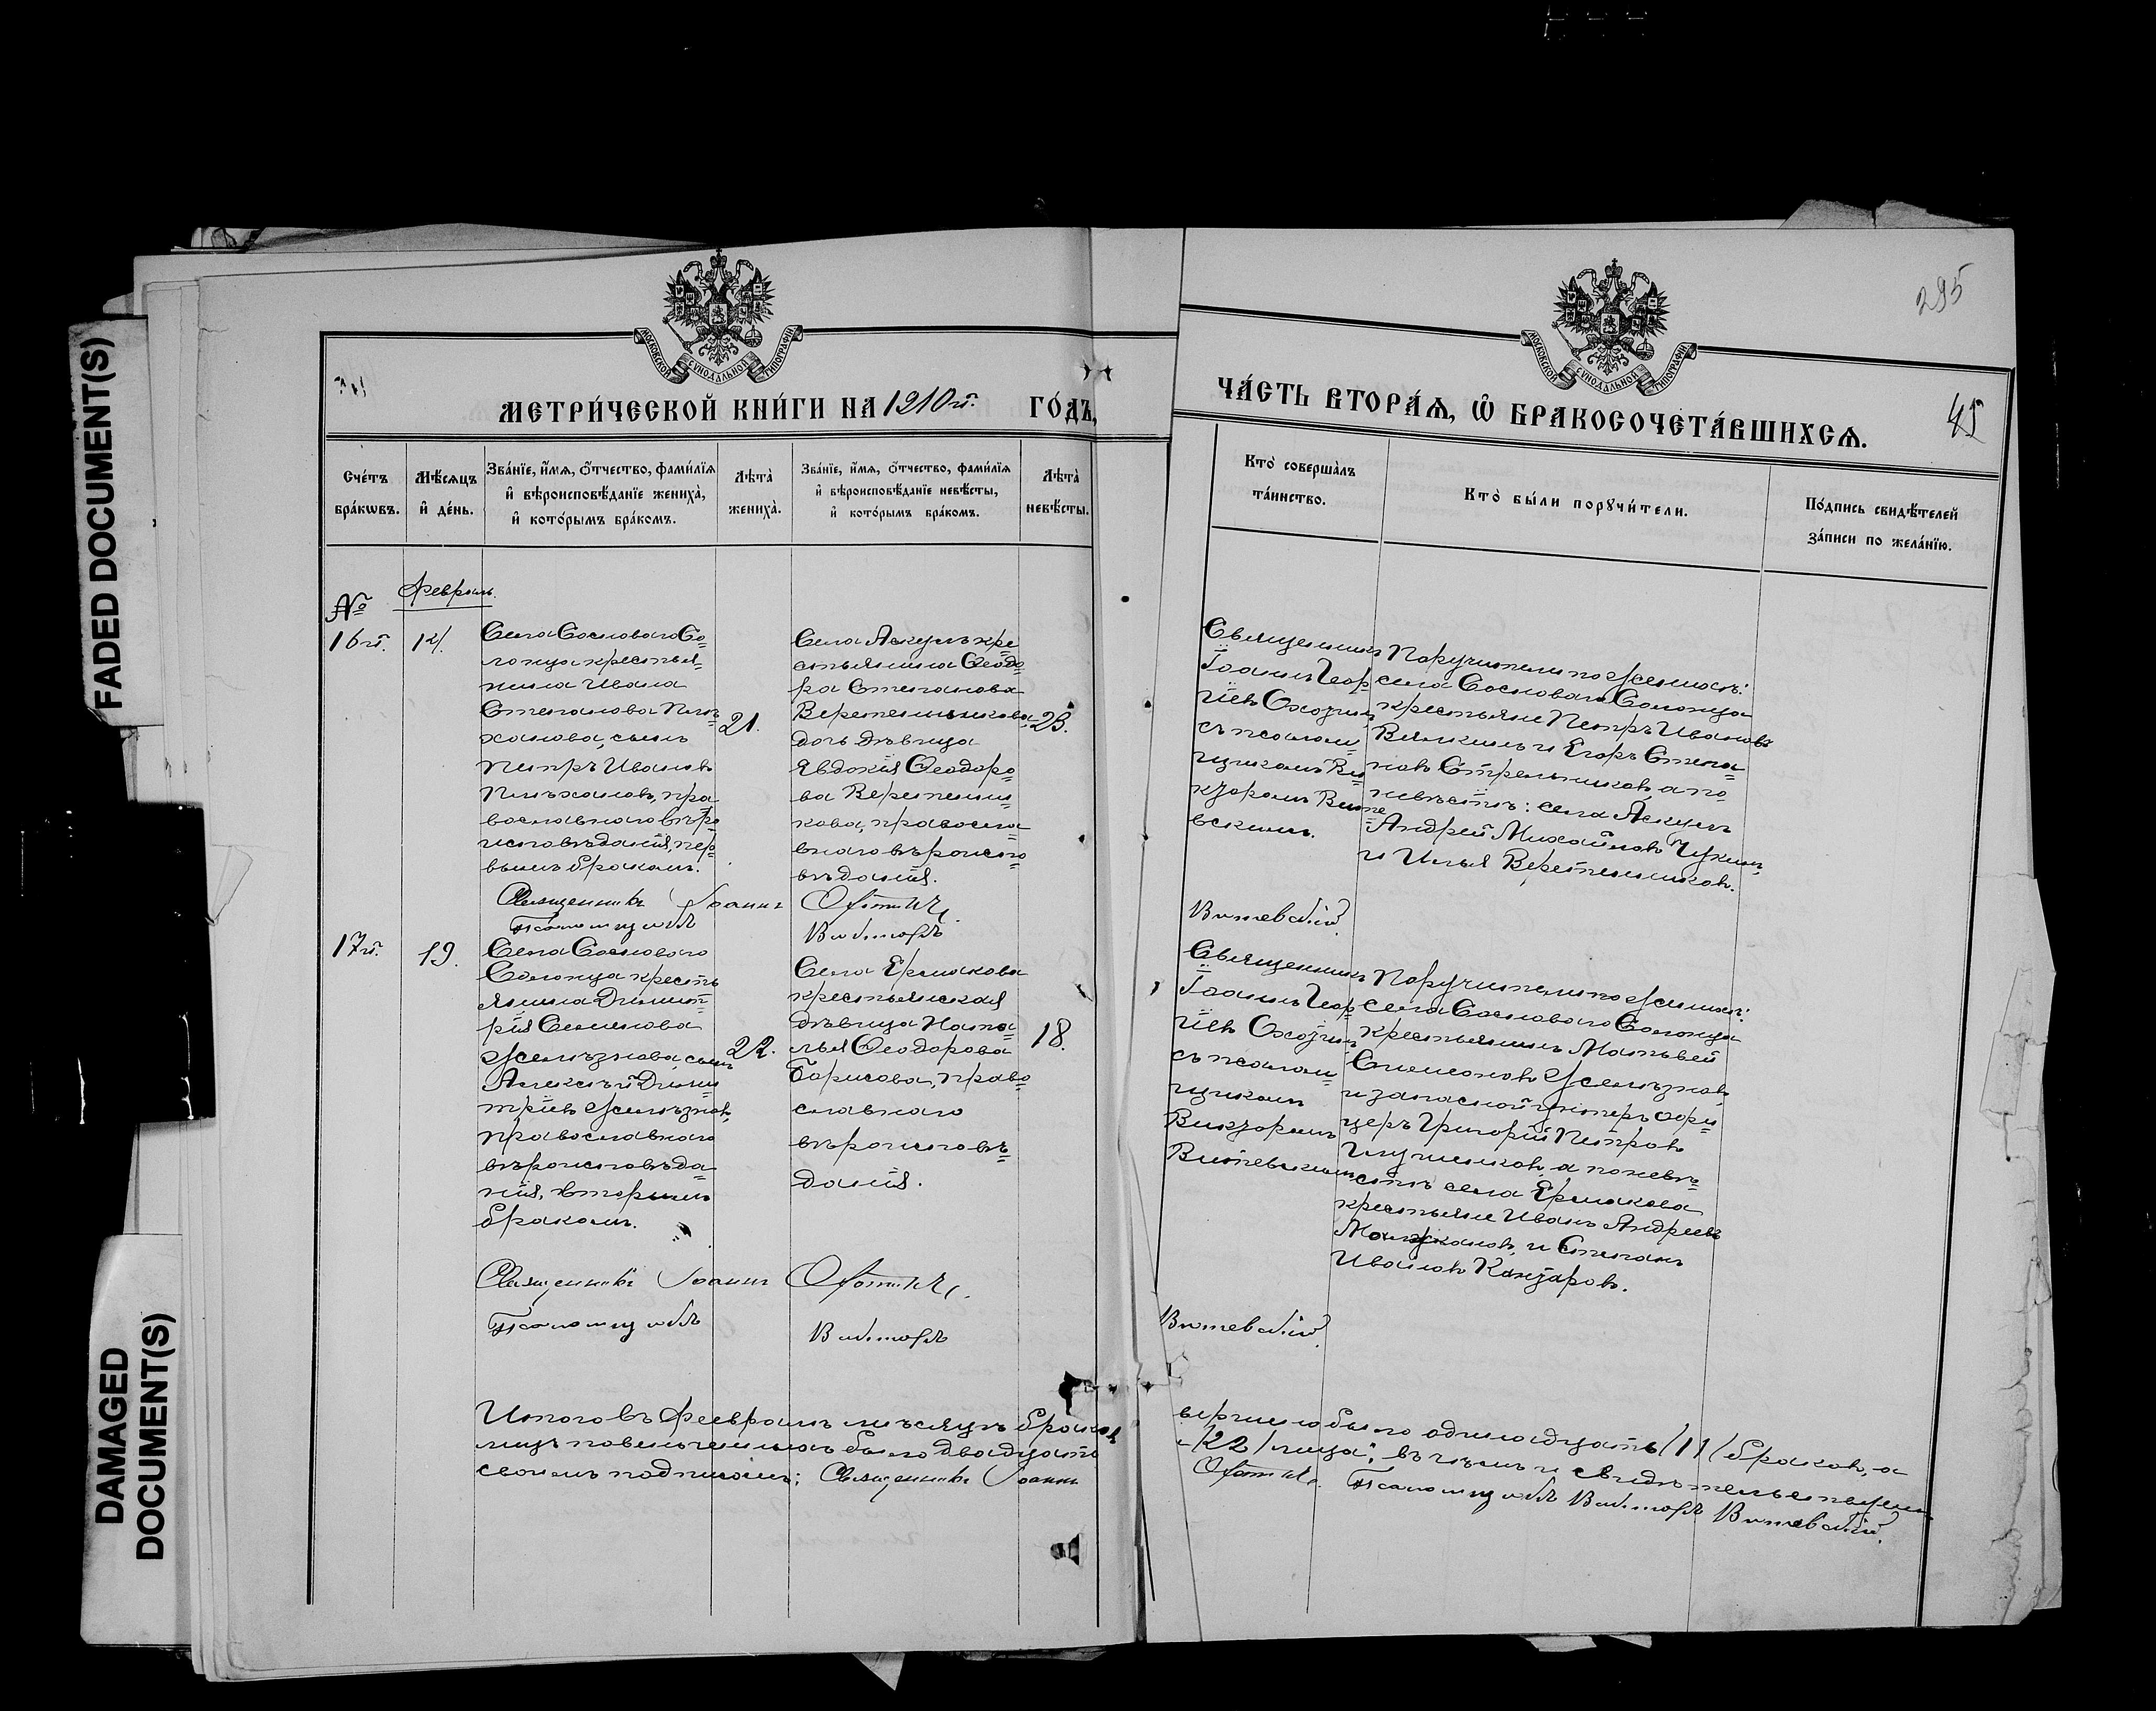 FADED DOCUMENT(S)
DAMAGED
DOCUMENT(S)
МОСКОВСКОЙ СѴНОДАЛЬНОЙ ТИПОГРАФІИ
МЕТРИ́ЧЕСКОЙ КНИ́ГИ НА 1910 г. ГО́ДЪ,
Сче́тъ
бра́кωвъ.
Мѣ́сяцъ
и҆ де́нь.
Зва́нїе, и҆́мѧ, ѻ҆́тчество, фами́лїѧ
и҆ вѣроисповѣ́данїе жениха̀,
и҆ кото́рымъ бра́комъ.
Лѣ́та̀
жениха̀.
Зва́нїе, и҆́мѧ, ѻ҆́тчество, фами́лїѧ
и҆ вѣроисповѣ́данїе невѣ́сты,
и҆ кото́рымъ бра́комъ.
Лѣ́та̀
невѣ́сты.
№
Февраль.
16й.
14.
Села Сосноваго Со=
лонца крестья=
нина Ивана
Степанова Пле=
ханова, сынъ
Петръ Ивановъ
Плехановъ, пра
вославнаго вѣро=
исповѣданія, пер=
вымъ бракомъ.
21.
Села Аскулъ кре=
стьянина Ѳеодо=
ра Степанова
Веретенникова
дочь дѣвица
Явдокія Ѳеодоро=
ва Веретенни=
кова, правосла=
внаго вѣроиспо=
вѣданія.
23.
Священникъ Іоаннъ
Псаломщикъ Викторъ
17й.
19.
Села Сосноваго
Солонца кресть
янина Димит=
рія Семенова
Желѣзнова, сынъ
Алексѣй Дими=
тріевъ Желѣзновъ,
православнаго
вѣроисповѣда=
нія, вторымъ
бракомъ.
22.
Села Ермакова
крестьянская
дѣвица Ната=
лья Ѳеодорова
Борисова, право=
славнаго
вѣроисповѣ=
данія.
18.
Священникъ Іоаннъ
Псаломщикъ Викторъ
Итого въ Февралѣ мѣсяцѣ браков
лицъ повѣнчанныхъ было двадцать
своимъ подписомъ: Священникъ Іоаннъ
295
МОСКОВСКОЙ СѴНОДАЛЬНОЙ ТИПОГРАФІИ
ЧА́СТЬ ВТОРА́Ѧ, Ѽ БРАКОСОЧЕТА́ВШИХСѦ.
45
Кто̀ соверша́лъ
та́инство.
Кто̀ бы́ли порꙋчи́тели.
По́дпись свидѣ́телей
за́писи по жела́нїю.
Священникъ
Іоаннъ Геор=
гіевъ
съ псалом=
щикомъ Ви=
кторомъ Вите=
вскимъ.
Поручители по женихѣ:
села Сосноваго Солонца
крестьяне Петръ Ивановъ
Вялкинъ и Егоръ Степа=
новъ Стрельниковъ, а по
невѣстѣ: села Аскулъ
Андрей Михайловъ Чукинъ,
и Илья Веретенниковъ.
Витевскій
Священникъ
Іоаннъ Геор=
гіевъ
съ псалом=
щикомъ
Викторомъ
Витевскимъ
Поручители по женихѣ:
села Сосноваго Солонца
крестьянинъ Матвѣй
Симоновъ Желѣзновъ,
и запасной унтеръ офи=
церъ Григорій Петровъ
а по невѣ=
стѣ села Ермакова
крестьяне Иванъ Андреевъ
и Степанъ
Ивановъ Канзаровъ.
Витевскій
было одинадцать /11/ браковъ, а
/22/ лица; въ чемъ и свидѣтельствуемъ
Псаломщикъ Викторъ Витевскій.